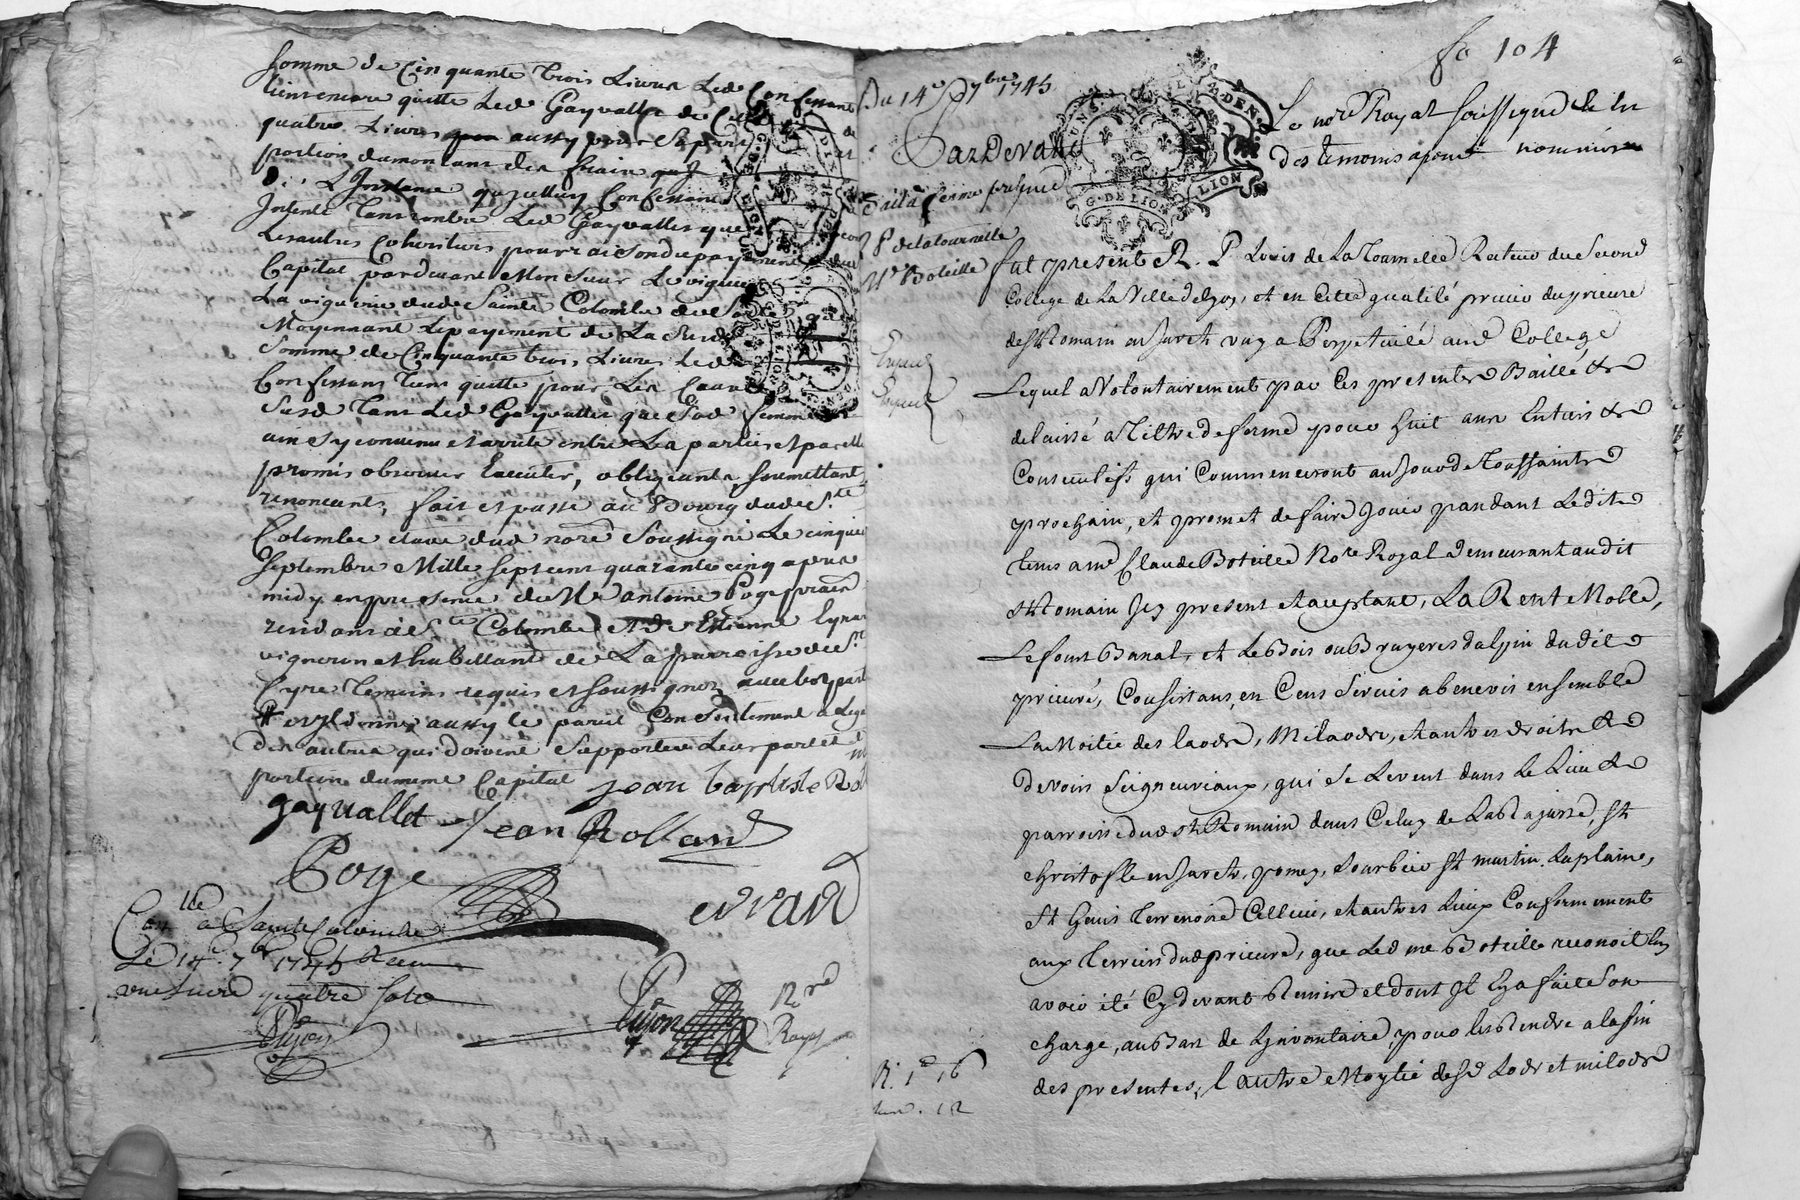 somme de Cinquante trois Livres Led. Confessant
tient encore quitte Led. Gayvallet de Celle de
quatre Livres aussy pour Sa part et
portion du montant des fraix que
L'Instance qu'julluy Confessant
Intenté tant contre Led. Gayvallet que contre
Les autres Coheritiers pour raison du payement dud.
Capital pardevant Monsieur Le viguier
La viguerie dude Sainte Colombe
Moyennant Le payement de La Susd.
Somme de Cinquante trois Livres Led.
Confessant tient quitte pour Les Causes
Susd. tant Led. Gayvallet que Sad. femme
ainsy convenu et arreté entre Les parties et par elles
promis observer Executer, obligeants, soumettants
renonceants, fait et passé au Bourg dude Ste
Colombe etude dud. nore Soussigné Le cinquie
Septembre Mille Sept cent quarante cinq apres
midy en presence de Mr antoine Poge praen
residant à Ste Colombe et de Estienne
vigneron et habittant de La parroisse de St
Cyre temoins requis et soussignez avec les part
# et donne aussy le pareil Consentement a Lege
des autres qui doivent Supporter Leur part et
portion du meme Capital jean baptiste Rol
gayvallet Jean Rolland
Poge
evrard
Conlle a Sainte Colombe
Le 14e 7bre 1745 Receu
une Livre quatre sols
Dijon
Dijon
Nre
Royal
fo 104
Du 14e 7bre 1745
Pardevant
Le nore Royal soussigné et en
des temoins apres nommés
Bail a ferme passé
P. de la tournelle
Mr Boteille
Expedié
Expedié
fut present R. P. Louis de La Tournelle Recteur du Second
College de La Ville de Lyon, et en Cette qualité prieur du prieuré
de St Romain en Jarets uny a Perpetuité aud. College
Lequel a Volontairement par Ces presentes Baillé et
delaissé a Tiltre de ferme pour huit ans Entiers et
Consecutifs qui Commenceront au Jour de Toussaints
prochain, et promet de faire Jouir pandant Ledit
tems a me Claude Boteille Nore Royal demeurant audit
St Romain Jcy present et acceptant, La Rente Noble,
Le four Banal, et Le Bois ou Bruyeres dalpin dudit
prieuré, Consistans en Cens Servis abenevis ensemble
La Moitié des laods, Milaods, et autres droits et
Devoirs Seigneuriaux, qui se Levent dans Le Lieu et
parroisse dud. St Romain dans Celuy de La Bajasse, St
christofle en Jarets, pomey, Sourbiu St martin Laplaine,
St Genis Terrenoire Cellieu, et autres Lieux Conformement
aux Terriers dud. prieuré, que Led. me Boteille reconoit luy
avoir été Cy devant Remis et dont Il s'est fait Son
charge, au Bas de Linvantaire, pour les Rendre a la fin
des presentes, l'autre Moytié desd. Lods et milods
R. 1er 16
12